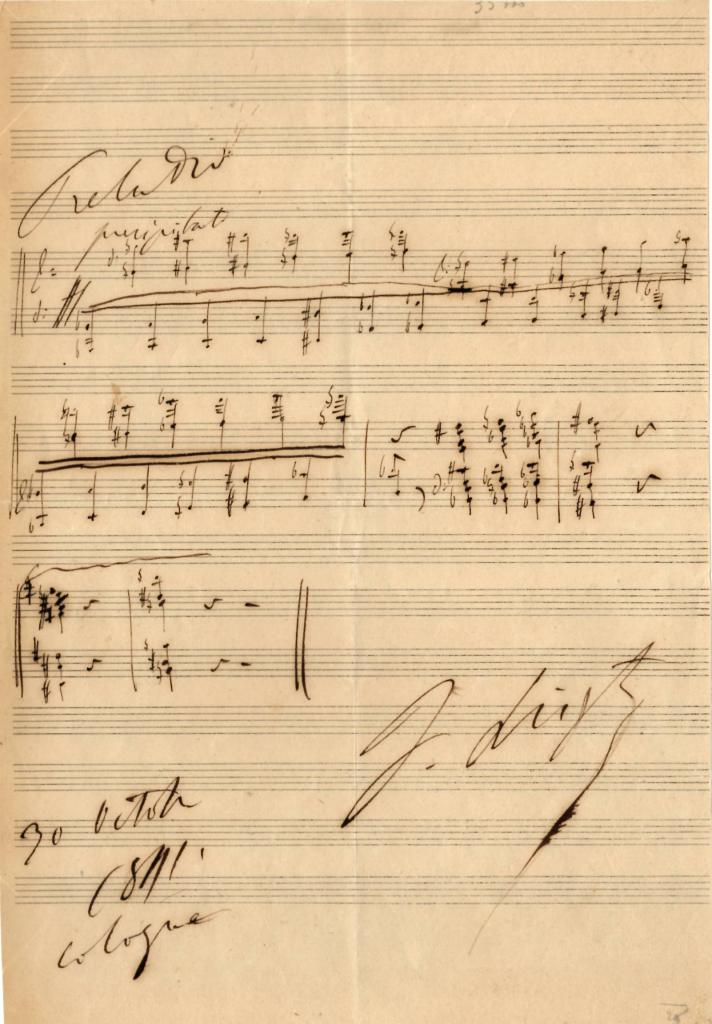 Preludio
precipitato
F. Liszt
30 Octob
Cologne